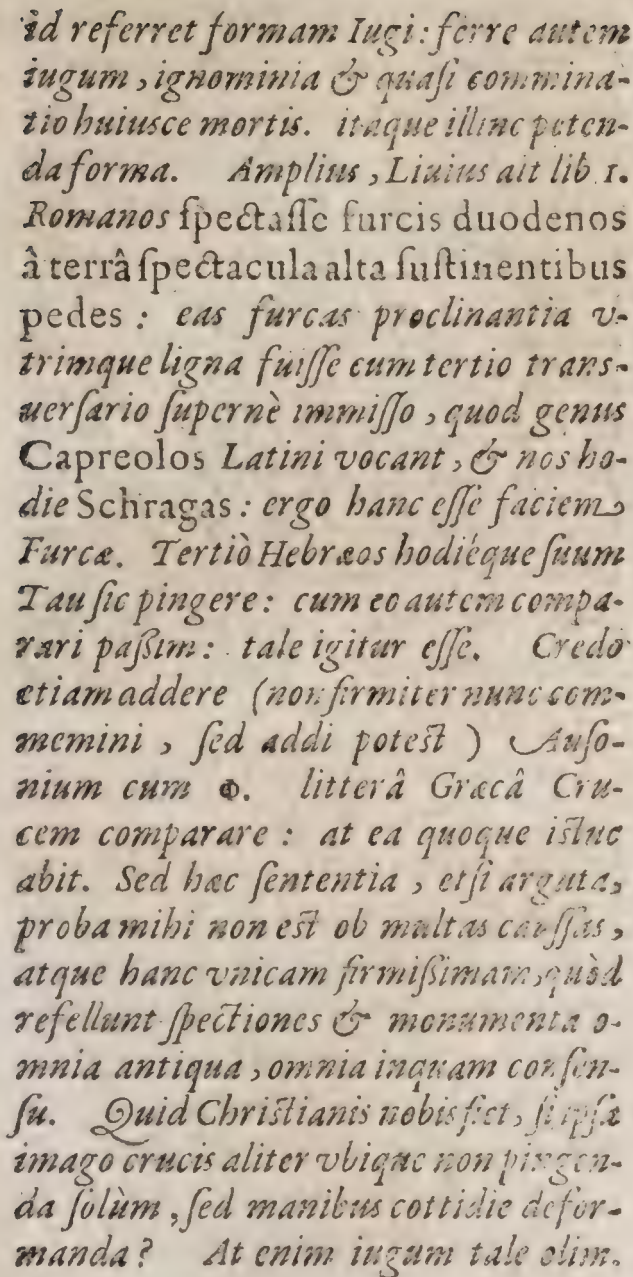 id referret formam Iugi: ferre autem
iugum, ignominia & quaſi commina-
tio huiusce mortis. itaque illinc peten-
da forma. Amplius, Liuius ait lib. 1.
Romanos ſpectaſſe furcis duodenos
â terrâ ſpectacula alta ſuſtinentibus
pedes: eas furcas proclinantia v-
trimque ligna fuiſſe cum tertio trans-
uerſario ſupernè immiſſo, quod genus
Capreolos Latini vocant, & nos ho-
die Schragas: ergo hanc eſſe faciem
Furcæ. Tertiò Hebræos hodiéque ſuum
Tau ſic pingere: cum eo autem compa-
rari paßim: tale igitur eſſe. Credo
etiam addere (non firmiter nunc com-
memini, ſed addi poteſt) Auſo-
nium cum Φ. litterâ Græcâ Cru-
cem comparare: at ea quoque iſtuc
abit. Sed hæc ſententia, etſi arguta,
proba mihi non eſt ob multas cauſſas,
atque hanc vnicam firmiſsimam, quòd
refellunt ſpectiones & monumenta o-
mnia antiqua, omnia inquam conſen-
ſu. Quid Chriſtianis nobis fiet, ſi ipſa
imago crucis aliter vbique non pingen-
da ſolùm, ſed manibus cottidie defor-
manda? At enim iugum tale olim.